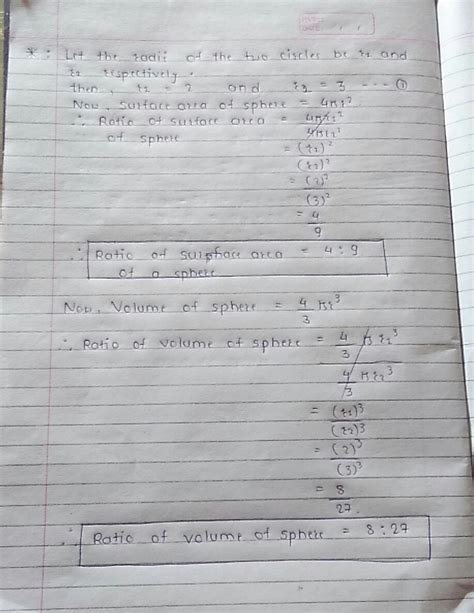 * : Let the radii of the two circles be r1 and
r2 respectively.
then, r1 = 2 and r2 = 3 ---- ①
Now, surface area of sphere = 4πr²
∴ Ratio of surface area = 4πr1²
of sphere 4πr2²
= (r1)²
(r2)²
= (2)²
(3)²
= 4
9
∴ Ratio of surphace area = 4 : 9
of a sphere
Now, Volume of sphere = 4 πr³
3
∴ Ratio of volume of sphere = 4 πr1³
3
4 πr2³
3
= (r1)³
(r2)³
= (2)³
(3)³
= 8
27
∴ Ratio of volume of sphere = 8 : 27